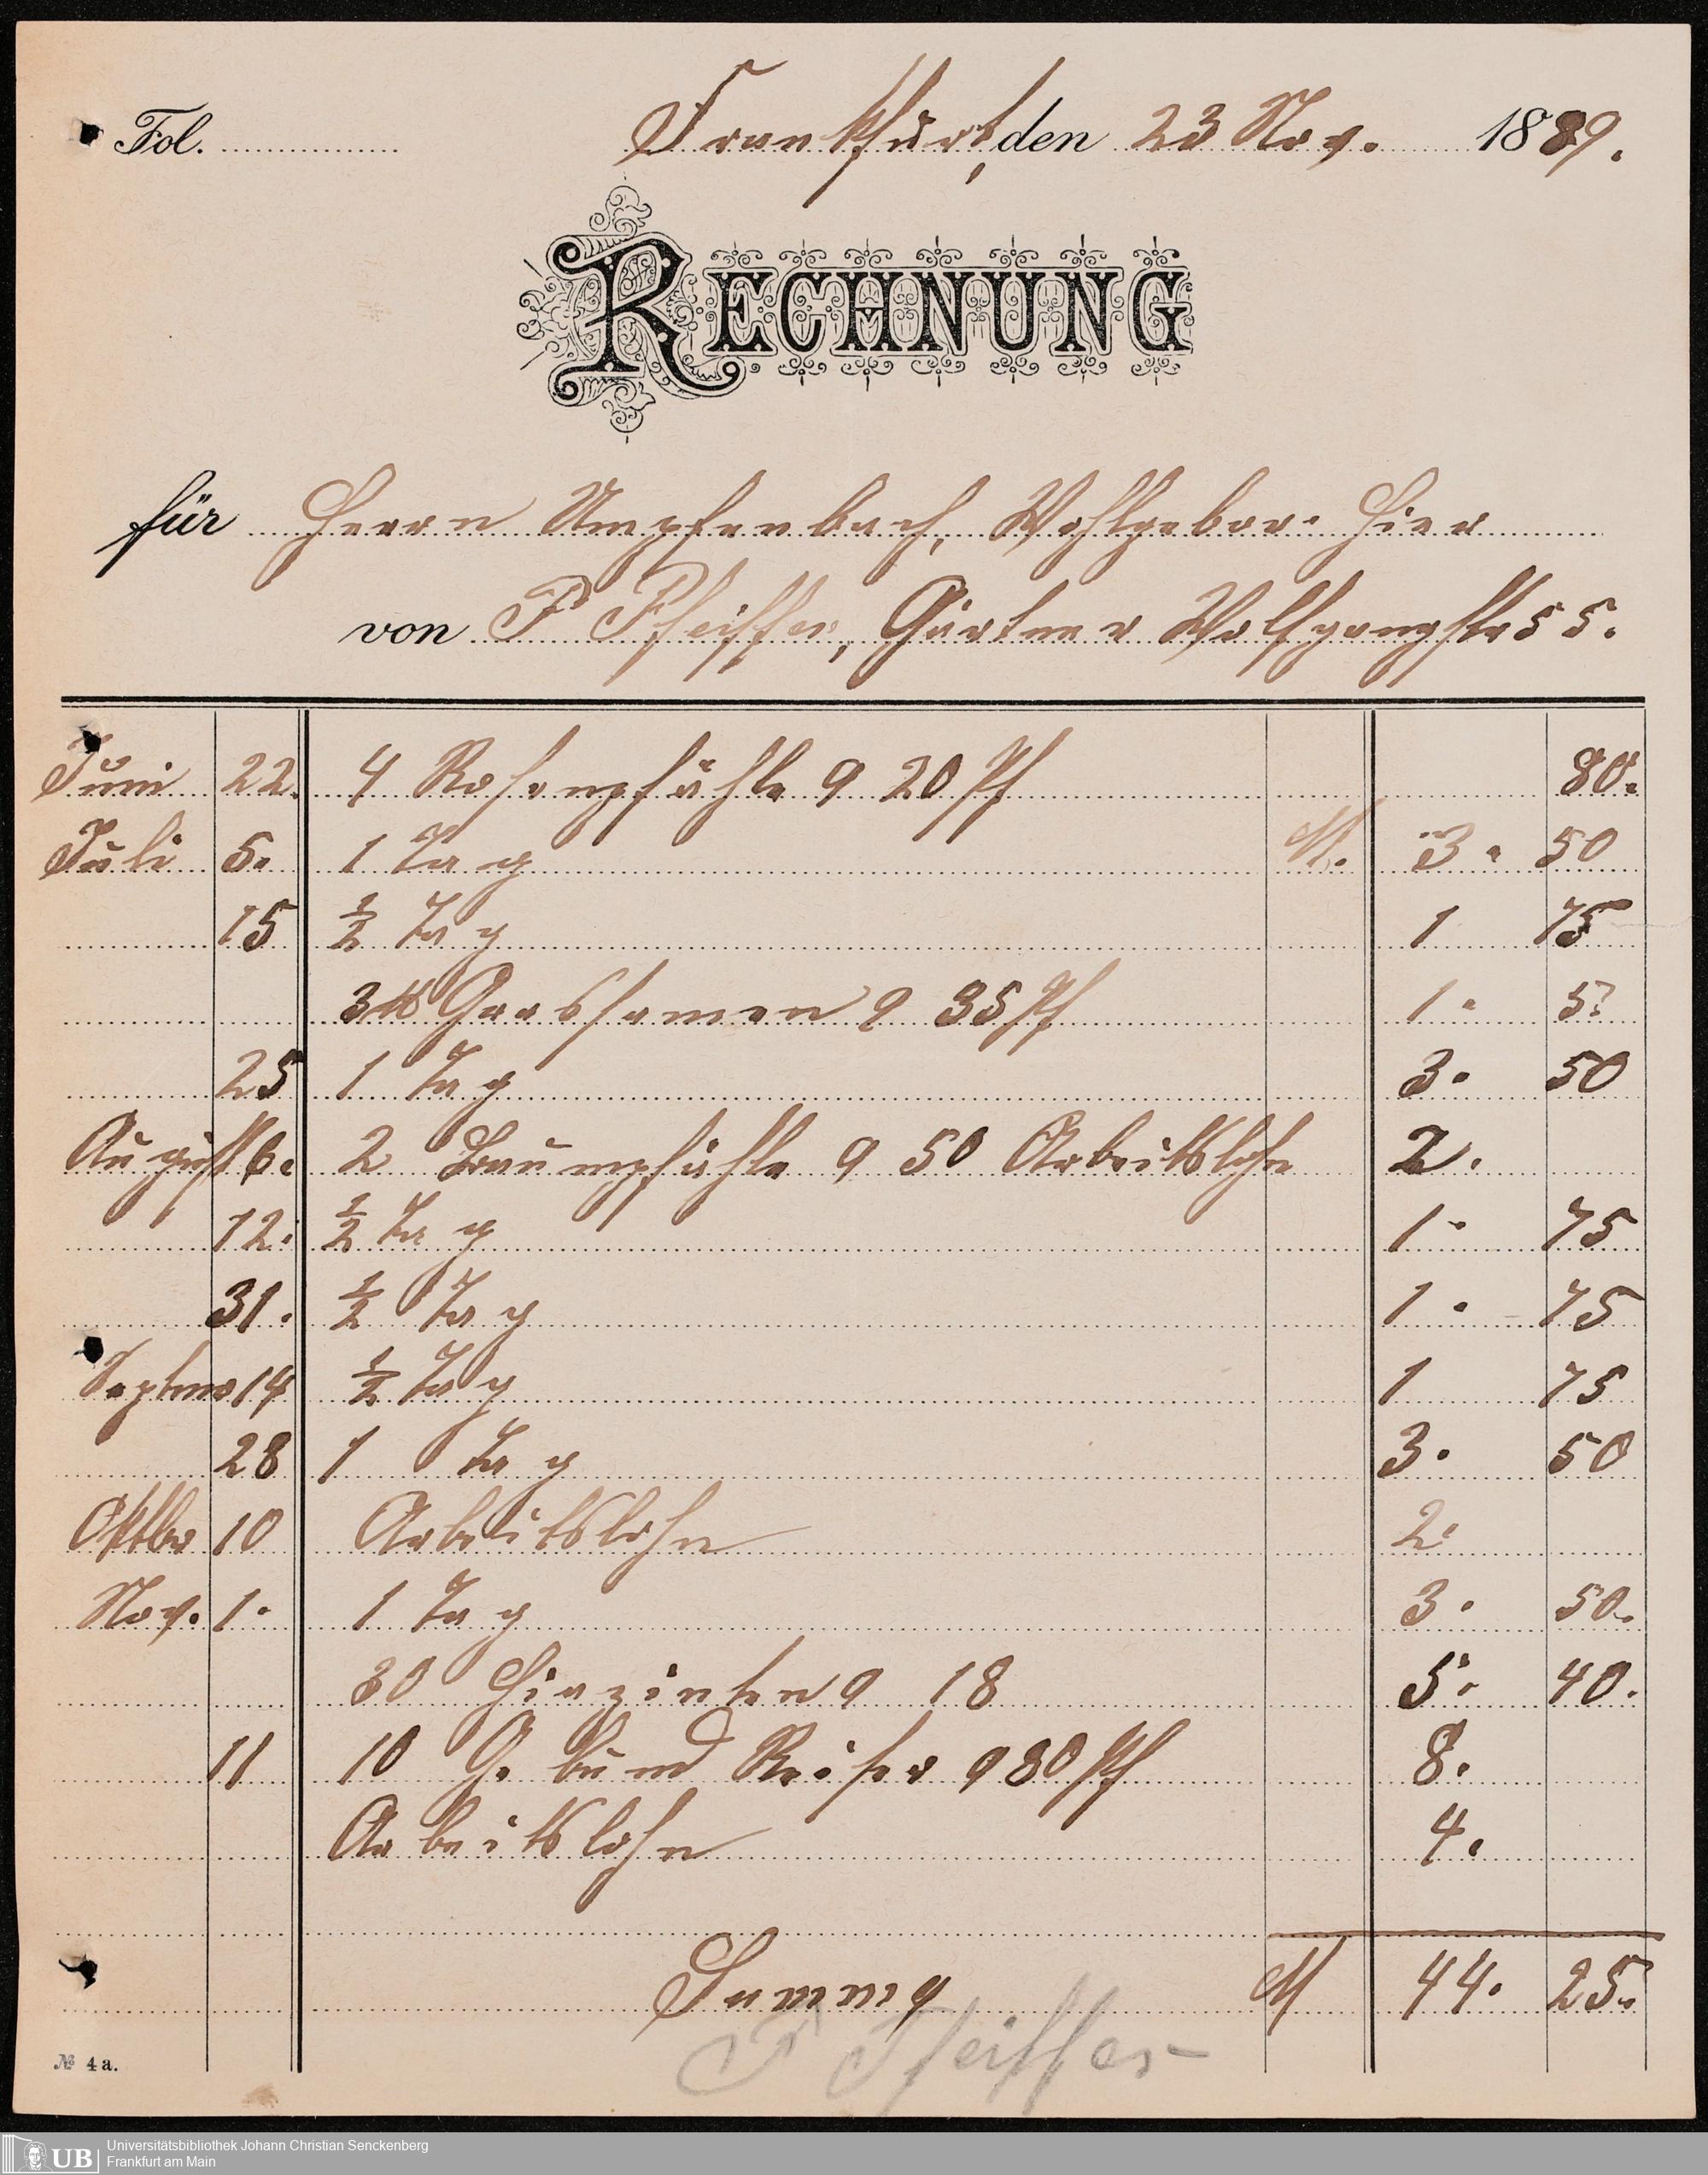 Fol. Frankfurt, den 23 Nov. 1889.
RECHNUNG
für Herrn Umpfenbach, Wohlgebor. Hier
von P Pfeiffer, Gärtner Wolfgangstr 55.
Juni 22. 4 Rosenpfähle a 20 Pf 80.
Juli 5. 1 Tag M. 3. 50
15 ½ Tag 1 75
3 ℔ Grassamen a 35 Pf 1. 5.
25 1 Tag 3. 50
August 6. 2 Baumpfähle a 50 Arbeitslohn 2.
12. ½ Tag 1. 75
31. ½ Tag 1. 75
Septmr 14 ½ Tag 1 75
28 1 Tag 3. 50
Oktbr 10 Arbeitslohn 2.
Nov. 1. 1 Tag 3. 50.
30 Hiazinten a 18 5. 40.
11 10 Gebund Reiser a 80 Pf 8.
Arbeitslohn 4.
Summa M 44. 25.
P Pfeiffer
№ 4a.
UB Universitätsbibliothek Johann Christian Senckenberg
Frankfurt am Main